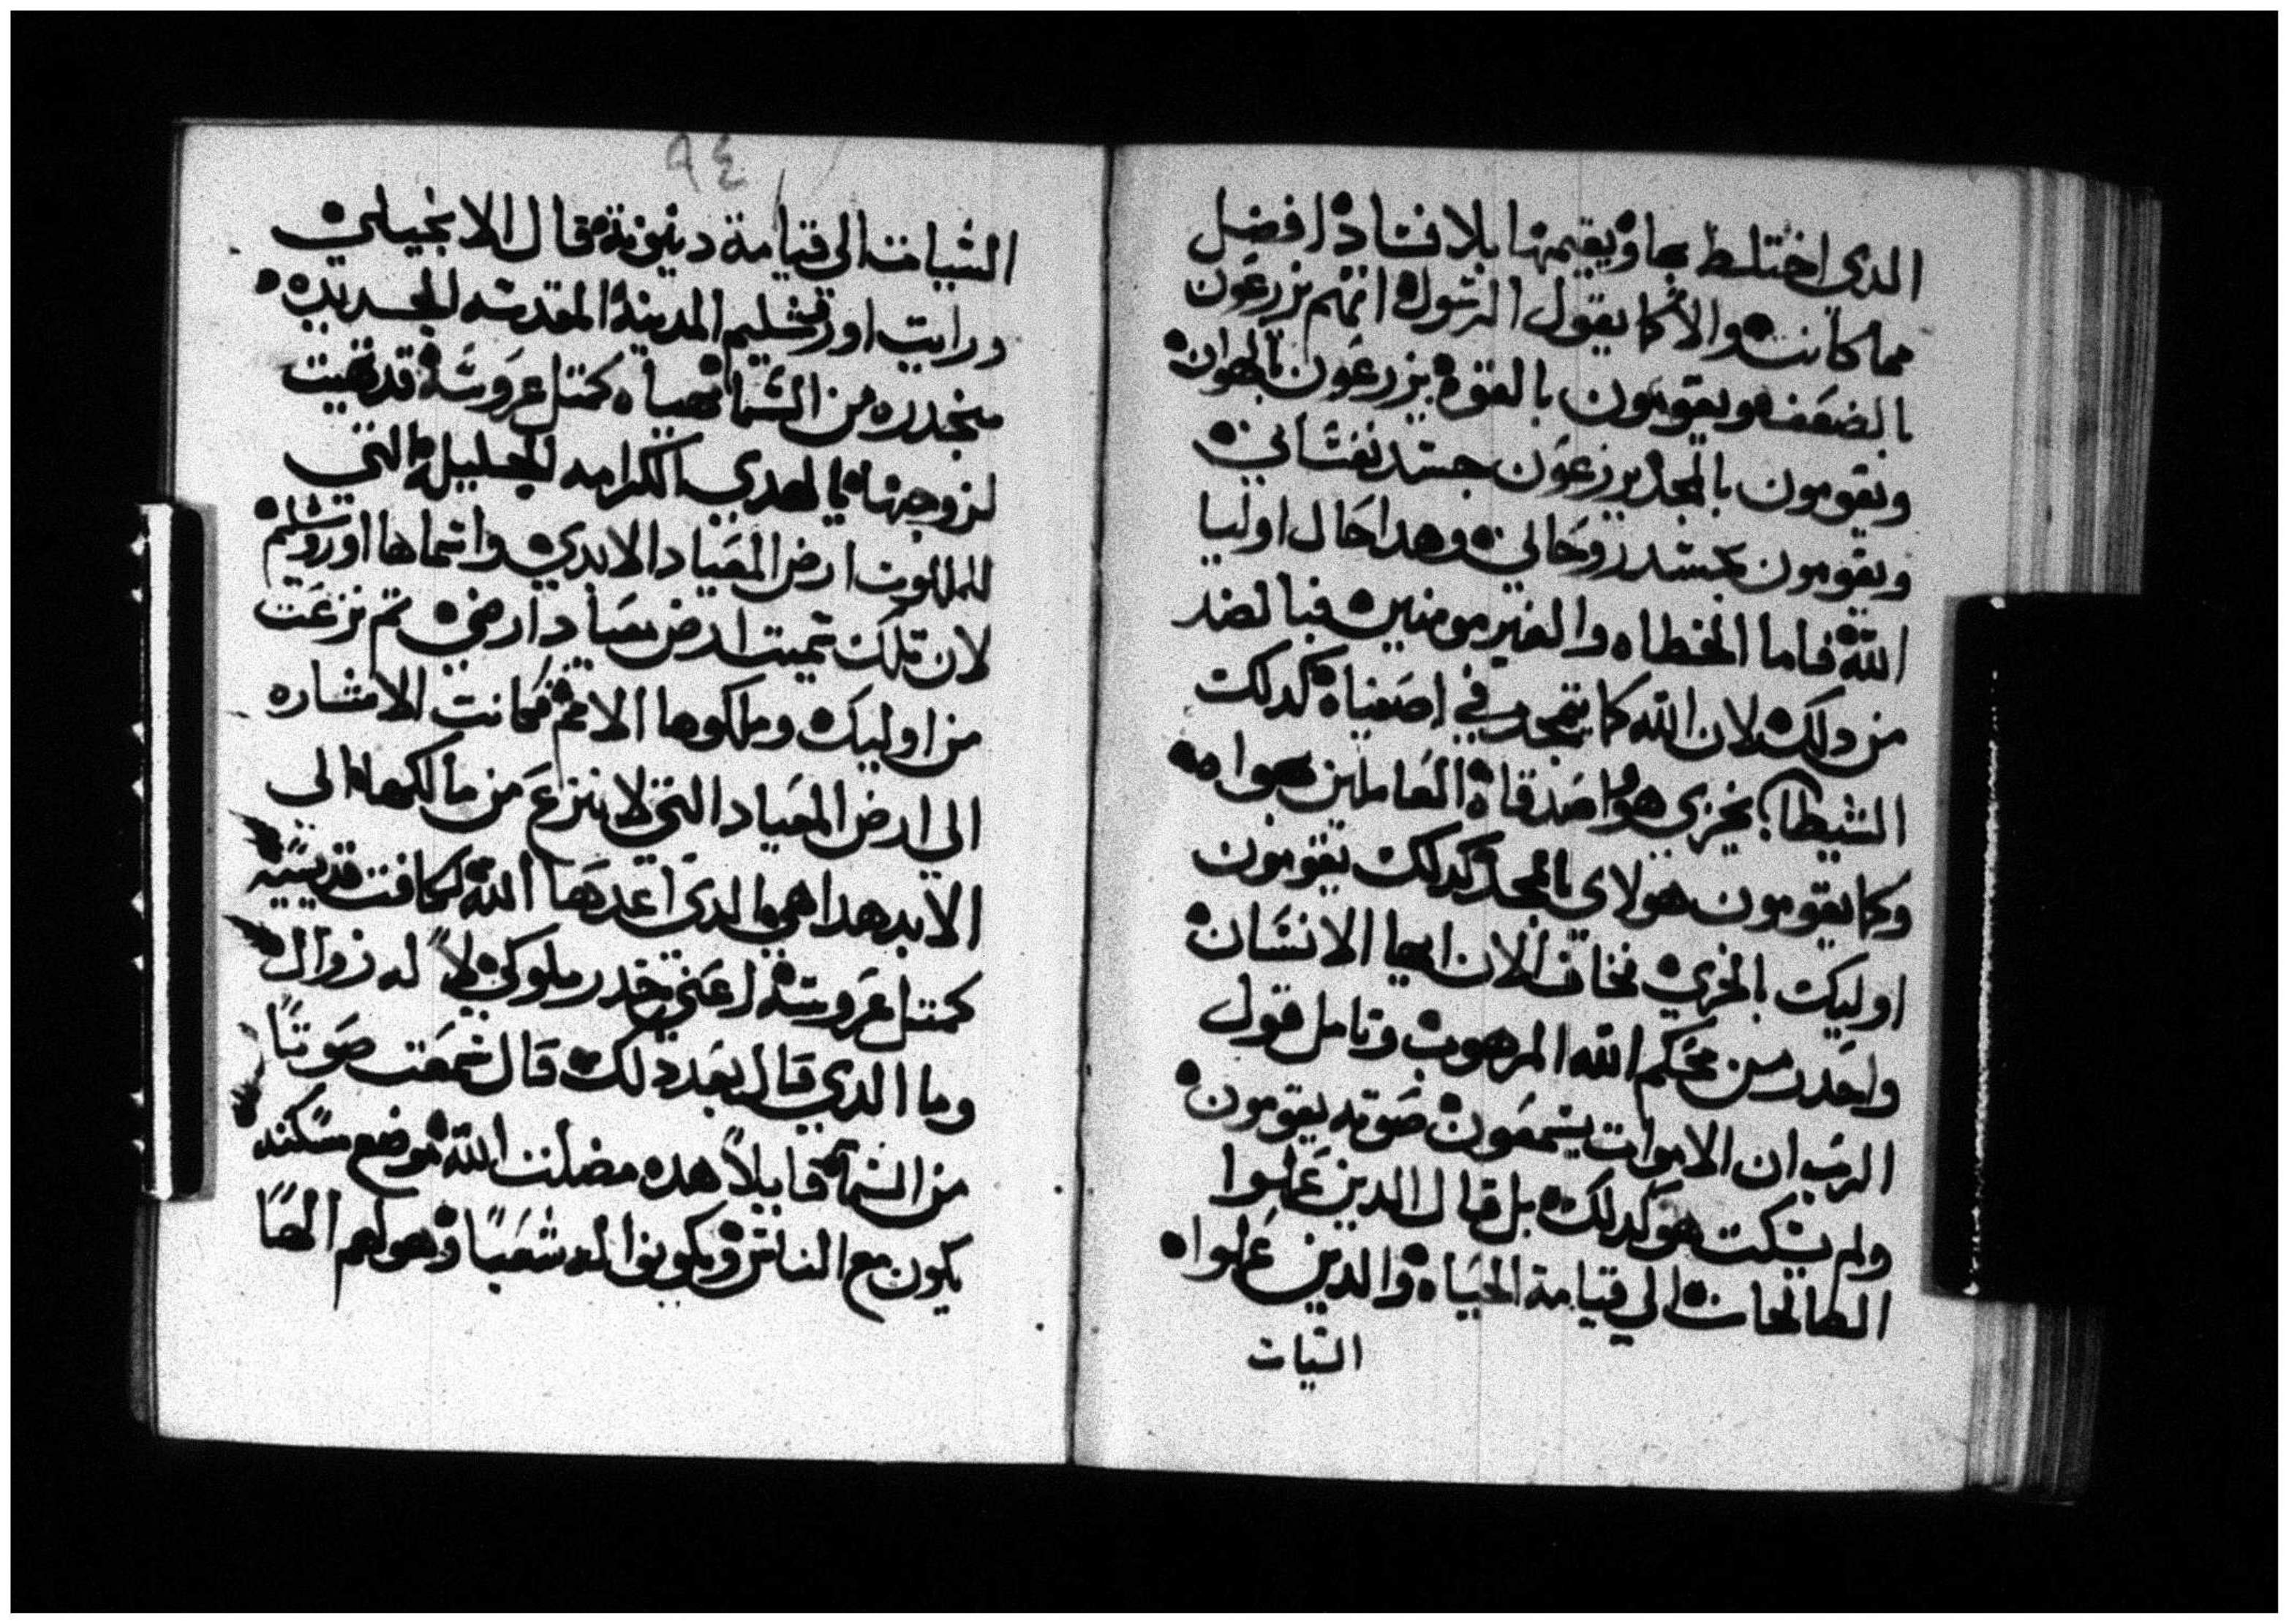 الدي اختلط بها ويقيمها بلا فساد افضل
مما كانت والان كما يقول الرسول انهم يزرعون
بالضعف ويقومون بالقوة يزرعون بالهوان
ويقومون بالمجد يزرعون جسد نفساني
ويقومون بجسد روحاني وهدا حال اوليا
الله فاما الخطاه والغير مومنين فبالضد
من دلك لان الله كما يتمجد في اصفياه كدلك
الشيطان يخزي هو اصدقاه العاملين هواه
وكما يقومون هولاي بالمجد كدلك يقومون
اوليك بالخزي فخاف الان ايها الانسان
واحدر من حكم الله المرهوب وتامل قول
الرب ان الاموات يسمعون صوته يقومون
ولم يسكت هو كدلك بل قال الدين عملوا
الصالحات الي قيامة الحياه والدين عملوا
السيات
٩٤
السيات الي قيامة دينونة قال الانجيلي
ورايت اورشليم المدينة المقدسه الجديده
منحدره من السما مهياه كمتل عروسة قد تهيت
لزوجها الكرامه الجليلة التي
للملكوت ارض الميعاد الابدي واسماها اورشليم
لان تلك سميت ارض ميعاد ارضي تم نزعت
من اوليك وملكوها الامم فكانت الاشاره
الي ارض الميعاد التي لا ينزع من مالكها الي
الابد هدا هي الدي اعدها الله لكافت قديسيه
كمتل عروسة اعني خدر ملوكي لا له زوال
وما الدي قال بعد دلك قال سمعت صوتاً
من السما قايلاً هده مضلت الله موضع سكنه
يكون مع الناس ويكونوا له شعباً وهو لهم الهاً